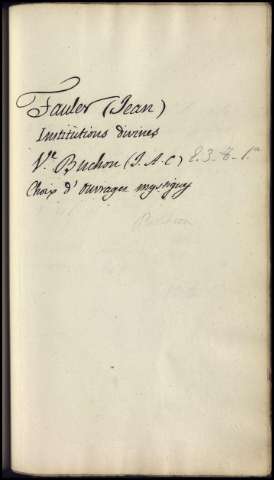 Tauler (Jean)
Institutions divines
V.te Buchon (J. A. C) E. 3. 8. 1.a
Choix d'ouvrages mystiques
Buchon